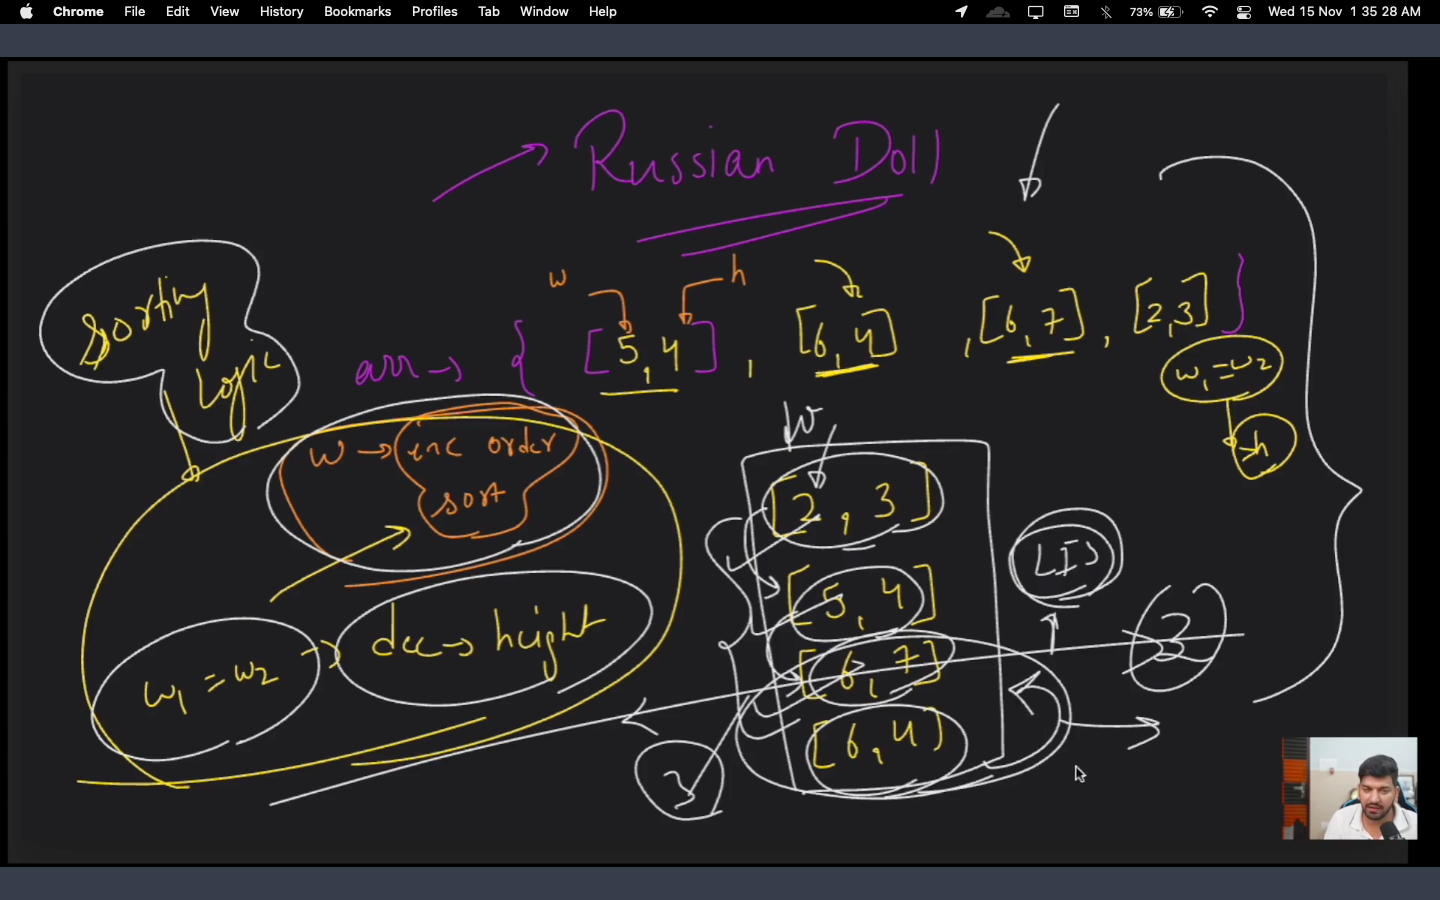 Chrome File Edit View History Bookmarks Profiles Tab Window Help 73% Wed 15 Nov 1 35 28 AM
Russian Doll
w h
arr → { [5,4] , [6,4] , [6,7] , [2,3] }
Sorting
Logic
w1 = w2
>h
w → inc order
sort
w1 = w2 → dec → height
W
[2, 3]
[5, 4]
[6, 7]
[6, 4]
LIS
3
3